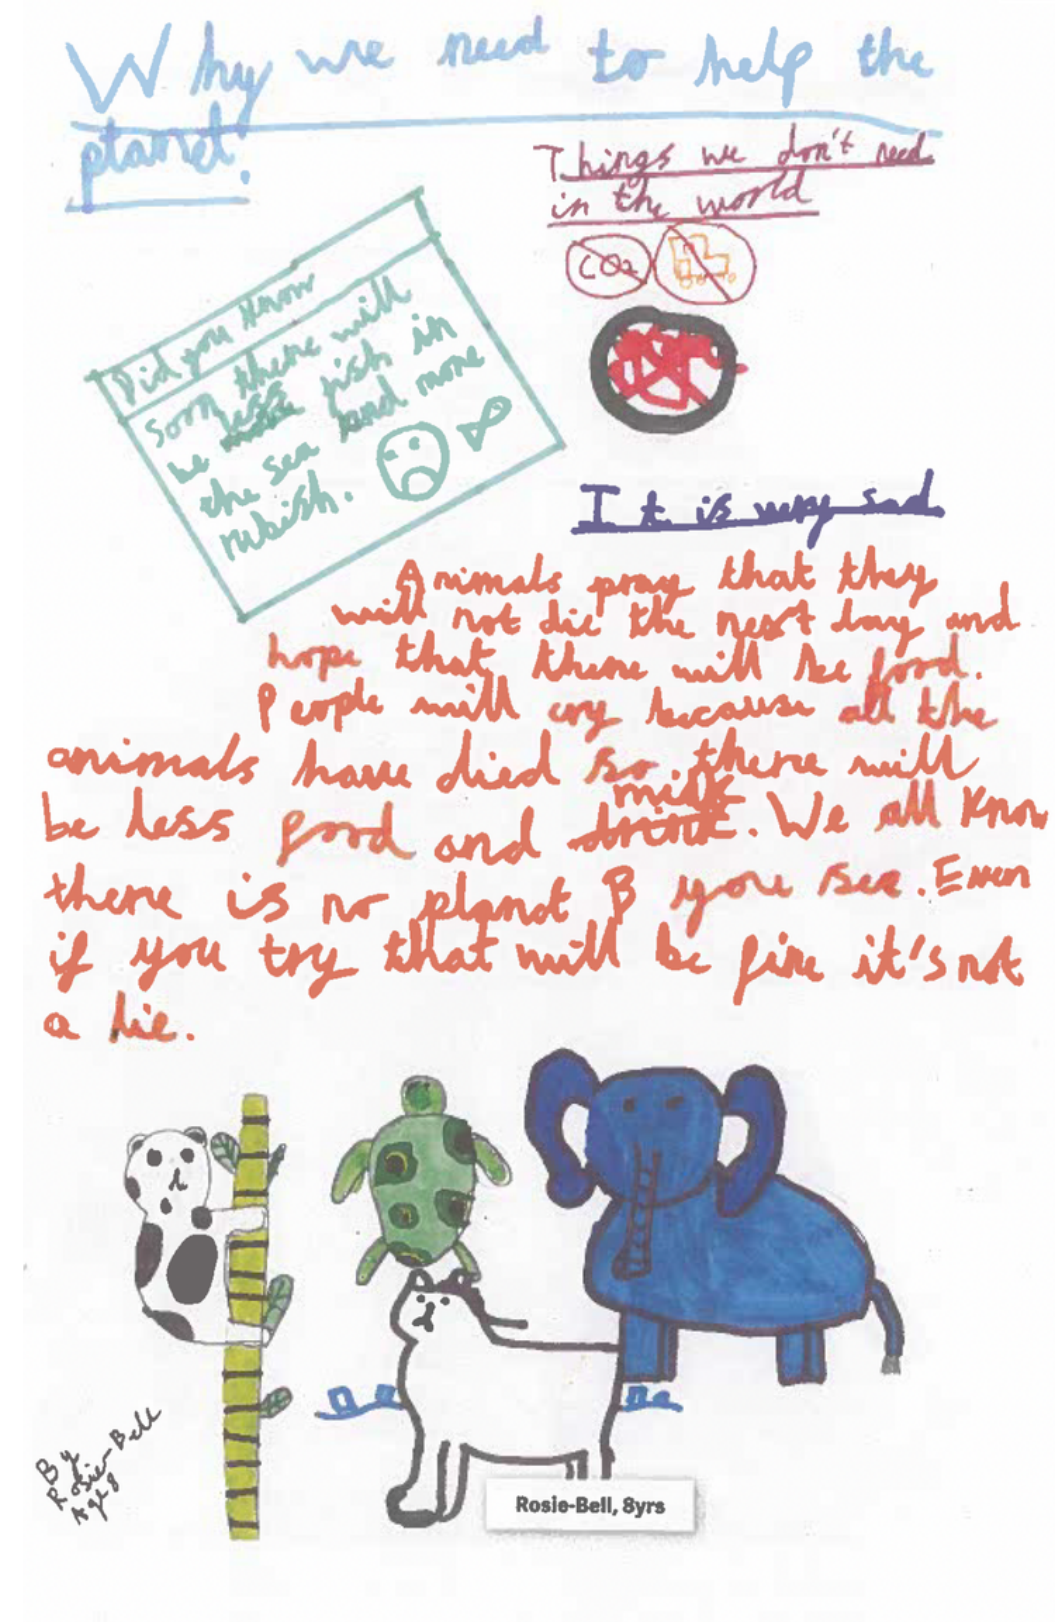 Why we need to help the
planet.
Things we don't need
in the world
CO2
Did you know
Soon there will
be less fish in
the sea and more
rubish.
It is very sad
Animals pray that they
will not die the next day and
hope that there will be food.
People will cry because all the
animals have died so there will
be less food and milk. We all know
there is no planet B you see. Even
if you try that will be fine it's not
a lie.
By
Rosie-Bell
Age 8
Rosie-Bell, 8yrs